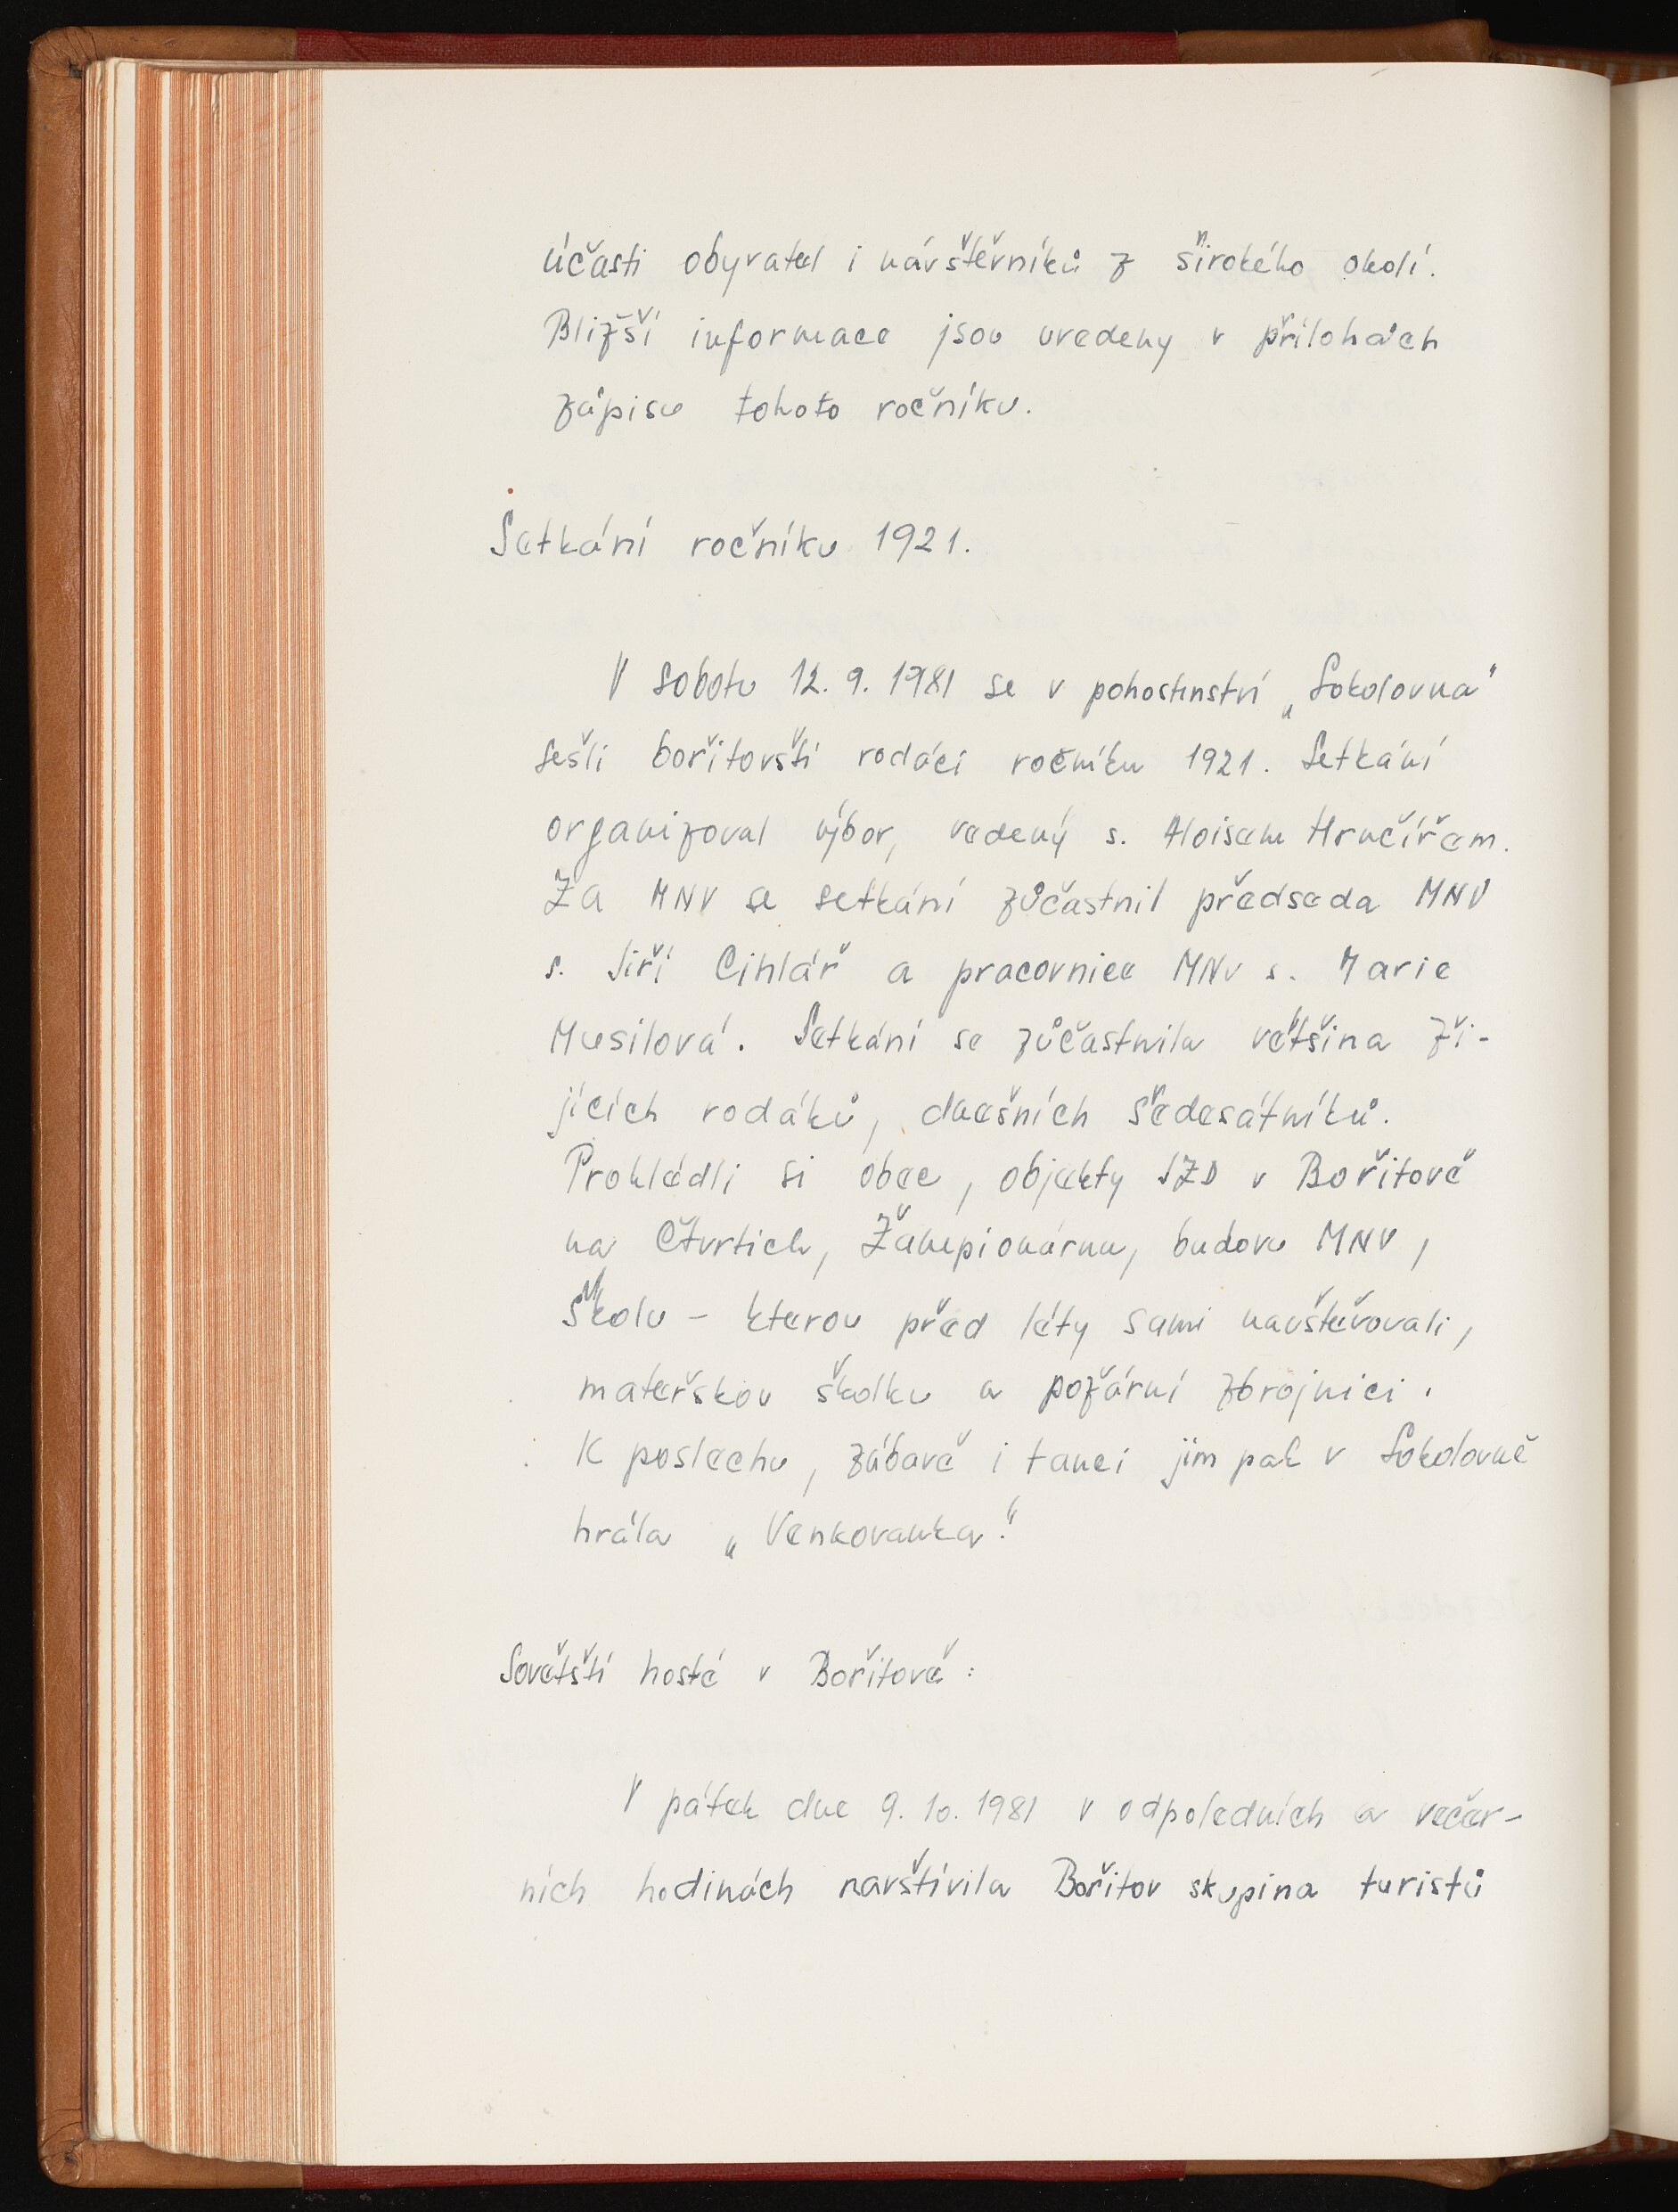 účasti obyvatel i návštěvníků z širokého okolí.
Bližší informace jsou uvedeny v přílohách
zápisu tohoto ročníku.
Setkání ročníku 1921.
V sobotu 12. 9. 1981 se v pohostinství „Sokolovna"
sešli bořitovští rodáci ročníku 1921. Setkání
organizoval výbor, vedený s. Aloisem Hrnčířem.
Za MNV se setkání zůčastnil předseda MNV
s. Jiří Cihlář a pracovnice MNV s. Marie
Musilová. Setkání se zůčastnila většina ži-
jících rodáků, dnešních šedesátníků.
Prohlédli si obec, objekty JZD v Bořitově
na Čtvrtích, Žampionárnu, budovu MNV,
školu - kterou před léty sami navštěvovali,
mateřskou školku a požární zbrojnici.
K poslechu, zábavě i tanci jim pak v Sokolovně
hrála „Venkovanka."
Sovětští hosté v Bořitově:
V pátek dne 9. 10. 1981 v odpoledních a večer-
ních hodinách navštívila Bořitov skupina turistů